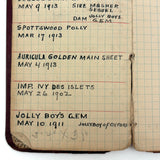 MAY 4 1913
SIRE MASHER
DAM JOLLY BOYS GEM
SPOTTSWOOD POLLY
MAR 17 1913
AURICULA GOLDEN MAIN SHEET
MAY 4 1913
IMP. IVY DES ISLETS
MAY 26 1902
JOLLY BOY'S GEM
MAY 10 1911
JOLLY BOY OF